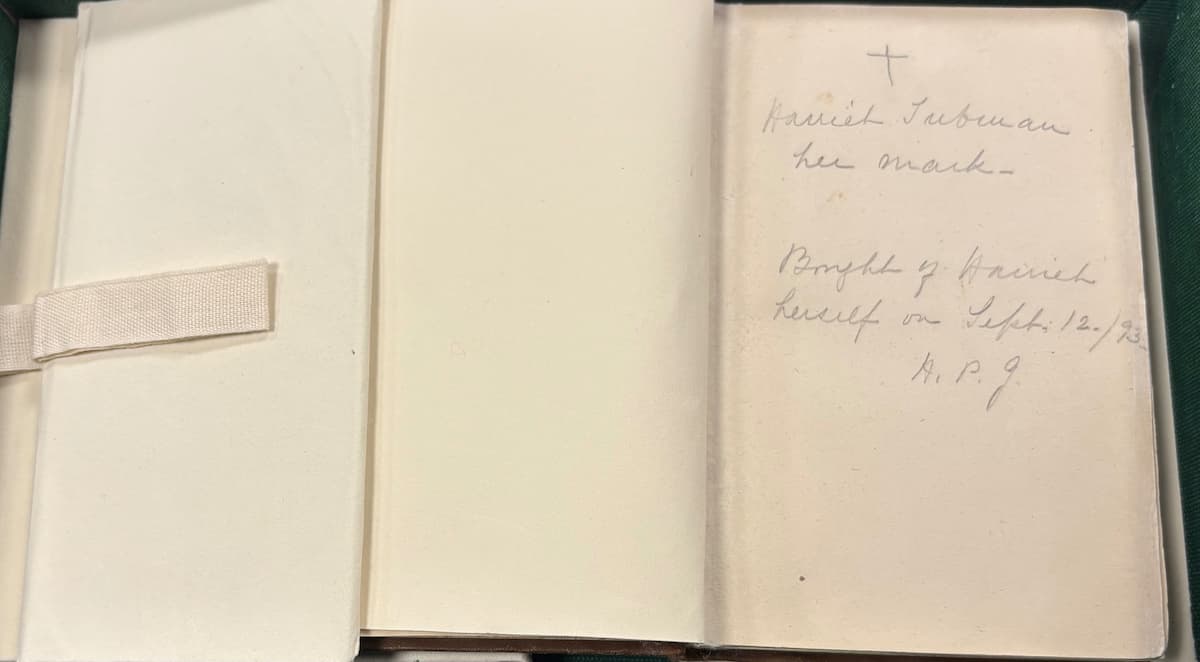 Harriet Tubman
her mark-
Bought of Harriet
herself on Sept: 12-/93-
A. P. J.